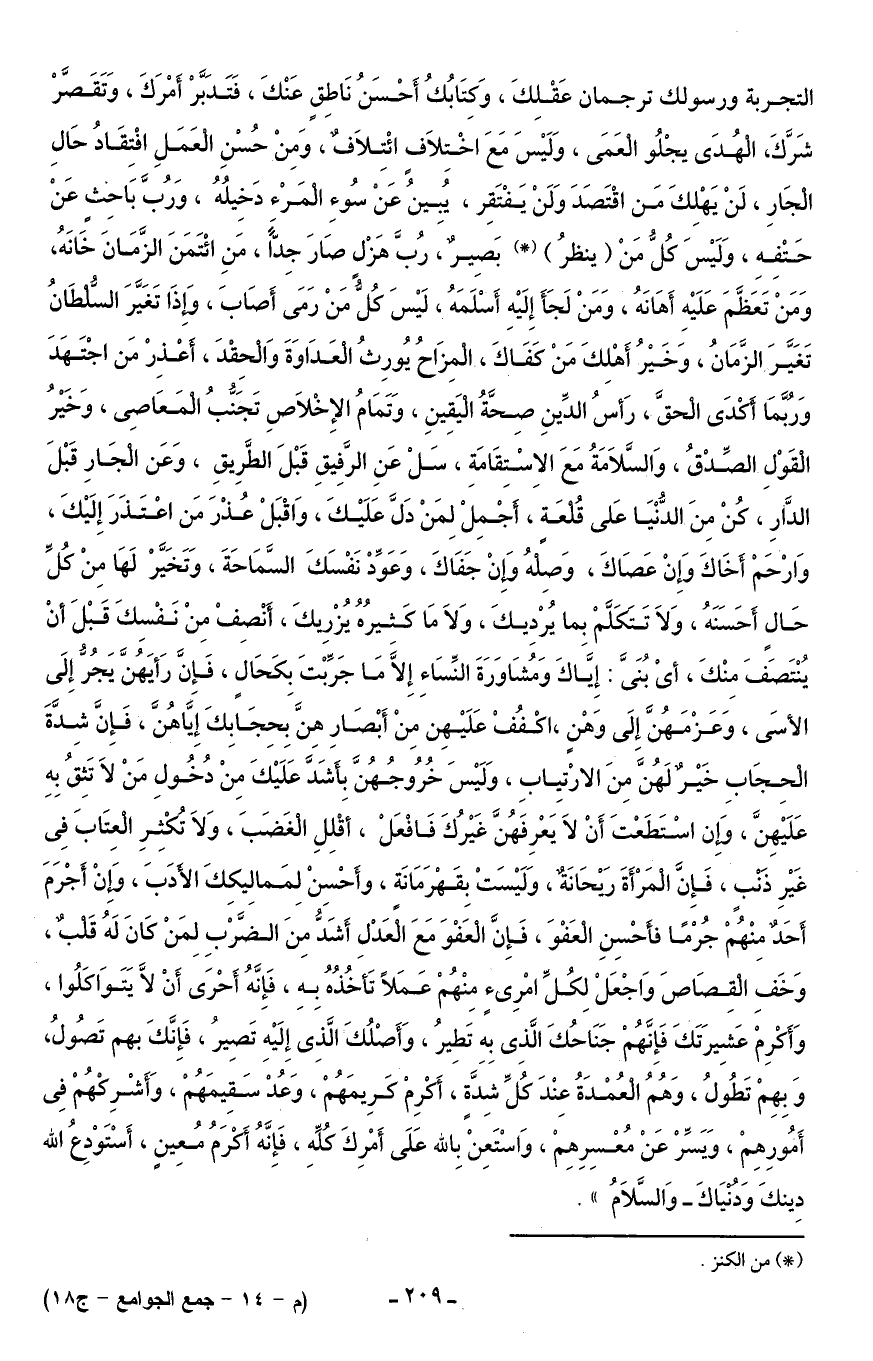 التجربة ورسولك ترجمان عَقْلِكَ ، وَكتَابُكُ أَحْسَنُ نَاطِقٍ عَنْكَ ، فَتَدبَّرْ أَمْرَكَ ، وَتَقَصَّرْ
شَرَّكَ، الْهُدَى يجْلُو العَمَى ، وَلَيْسَ مَعَ اخْتِلاَفٍ ائْتِلاَفٌ ، وَمِنْ حُسْنِ الْعَمَلِ افْتِقَادُ حَالِ
الْجَارِ ، لَنْ يَهْلِكَ مَنِ اقْتَصَدَ وَلَنْ يَفْتَقِر ، يُبِينُ عَنْ سُوءِ الْمَرْءِ دَخِيلُهُ ، وَرُبَّ بَاحِثٍ عَنْ
حَتْفِهِ ، وَلَيْسَ كُلُّ مَنْ ( ينظرُ ) (*) بَصِيرٌ ، رُبَّ هَزْلٍ صَارَ جِدّاً ، مَنِ ائْتَمَنَ الزَّمَانَ خَانَهُ،
وَمَنْ تَعَظَّمَ عَلَيْهِ أَهَانَهُ ، وَمَنْ لَجَأَ إِلَيْهِ أَسْلَمَهُ ، لَيْسَ كُلُّ مَنْ رَمَى أَصَابَ ، وَإِذَا تَغَيَّرَ السُّلْطَانُ
تَغَيَّرَ الزَّمَانُ ، وَخَيْرُ أَهْلِكَ مَنْ كَفَاكَ ، الْمِزَاحُ يُورِثُ الْعَدَاوَةَ وَالْحِقْدَ ، أَعْذَرَ مَنِ اجْتَهَدَ
وَرُبَّمَا أَكْدَى الْحَقَّ ، رَأْسُ الدِّينِ صِحَّةُ الْيَقِينِ ، وَتَمَامُ الإِخْلاَصِ تَجَنُّبُ الْمَعَاصِى ، وَخَيْرُ
الْقَوْلِ الصِّدْقُ ، وَالسَّلاَمَةُ مَعَ الاسْتِقَامَةِ ، سَلْ عَنِ الرَّفِيقِ قَبْلَ الطَّرِيقِ ، وَعَنِ الْجَارِ قَبْلَ
الدَّارِ ، كُنْ مِنَ الدُّنْيَا عَلَى قُلْعَةٍ ، أَجْمِلْ لِمَنْ دَلَّ عَلَيْكَ ، وَاقْبَلْ عُذْرَ مَنِ اعْتَذَرَ إِلَيْكَ ،
وَارْحَمْ أَخَاكَ وَإِنْ عَصَاكَ ، وَصِلْهُ وَإِنْ جَفَاكَ ، وَعَوِّدْ نَفْسَكَ السَّمَاحَةَ ، وَتَخَيَّرْ لَهَا مِنْ كُلِّ
حَالٍ أَحْسَنَهُ ، وَلاَ تَتَكَلَّمْ بِما يُرْدِيكَ ، وَلاَ مَا كَثِيرُهُ يُزْرِيكَ ، أَنْصِفْ مِنْ نَفْسِكَ قَبْلَ أَنْ
يُنْتَصَفَ مِنْكَ ، أَىْ بُنَىَّ : إِيَّاكَ وَمُشَاوَرَةَ النِّسَاءِ إِلاَّ مَا جَرَّبْتَ بِكَحَالٍ ، فَإِنَّ رَأْيَهُنَّ يَجُرُّ إِلَى
الأَسَى ، وَعَزْمَهُنَّ إِلَى وَهْنٍ ،اكْفُفْ عَلَيْهِن مِنْ أَبْصَارِ هِنَّ بِحِجَابِكَ إِيَّاهُنَّ ، فَإِنَّ شِدَّةَ
الْحِجَابِ خَيْرٌ لَهُنَّ مِنَ الارْتِيَابِ ، وَلَيْسَ خُرُوجُهُنَّ بِأَشَدَّ عَلَيْكَ مِنْ دُخُولِ مَنْ لاَ تَثِقُ بِهِ
عَلَيْهِنَّ ، وَإِنِ اسْتَطَعْتَ أَنْ لاَ يَعْرِفَهُنَّ غَيْرُكَ فَافْعَلْ ، أقْلِلِ الْغَضَبَ ، وَلاَ تُكْثِرِ الْعِتَابَ فِى
غَيْرِ ذَنْبٍ ، فَإِنَّ الْمَرْأَةَ رَيْحَانَةٌ ، وَلَيْسَتْ بِقَهْرَمَانَةٍ ، وأَحْسِنْ لِمَمالِيكِكَ الأَدَبَ ، وَإِنْ أَجْرَمَ
أَحَدٌ مِنْهُمْ جُرْمًا فأَحْسِنِ الْعَفْوَ ، فَإِنَّ الْعَفْوَ مَعَ الْعَدْلِ أَشَدُّ مِنَ الضَّرْبِ لِمَنْ كَانَ لَهُ قَلْبٌ ،
وَخَفِ الْقِصَاصَ وَاجْعَلْ لِكُلِّ امْرِىءٍ مِنْهُمْ عَمَلاً تَأْخُذُهُ بِهِ ، فَإِنَّهُ أَحْرَى أَنْ لاَّ يَتَوَاكَلُوا ،
وأَكْرِمْ عَشِيرَتَكَ فَإِنَّهُمْ جَنَاحُكَ الَّذِى بِهِ تَطِيرُ ، وَأَصْلُكَ الَّذِى إِلَيْهِ تَصِيرُ ، فَإِنَّكَ بِهِم تَصُولُ،
وَ بِهِمْ تَطُولُ ، وَهُمُ الْعُمْدَةُ عِنْدَ كُلِّ شِدَّةٍ ، أَكْرِمْ كَرِيمَهُمْ ، وَعُدْ سَقِيمَهُمْ ، وَأَشْرِكْهُمْ فِى
أُمُورِهِمْ ، وَيَسِّرْ عَنْ مُعْسِرِهِمْ ، وَاسْتَعِنْ بِاللهِ عَلَى أَمْرِكَ كُلِّهِ ، فَإِنَّهُ أَكْرَمُ مُعِينٍ ، أَسْتَوْدِعُ الله
دِينَكَ وَدُنْيَاكَ ـ وَالسَّلاَمُ » .
(*) من الكنز .
ـ ٢٠٩ ـ
(م - ١٤ - جمع الجوامع - ج١٨)